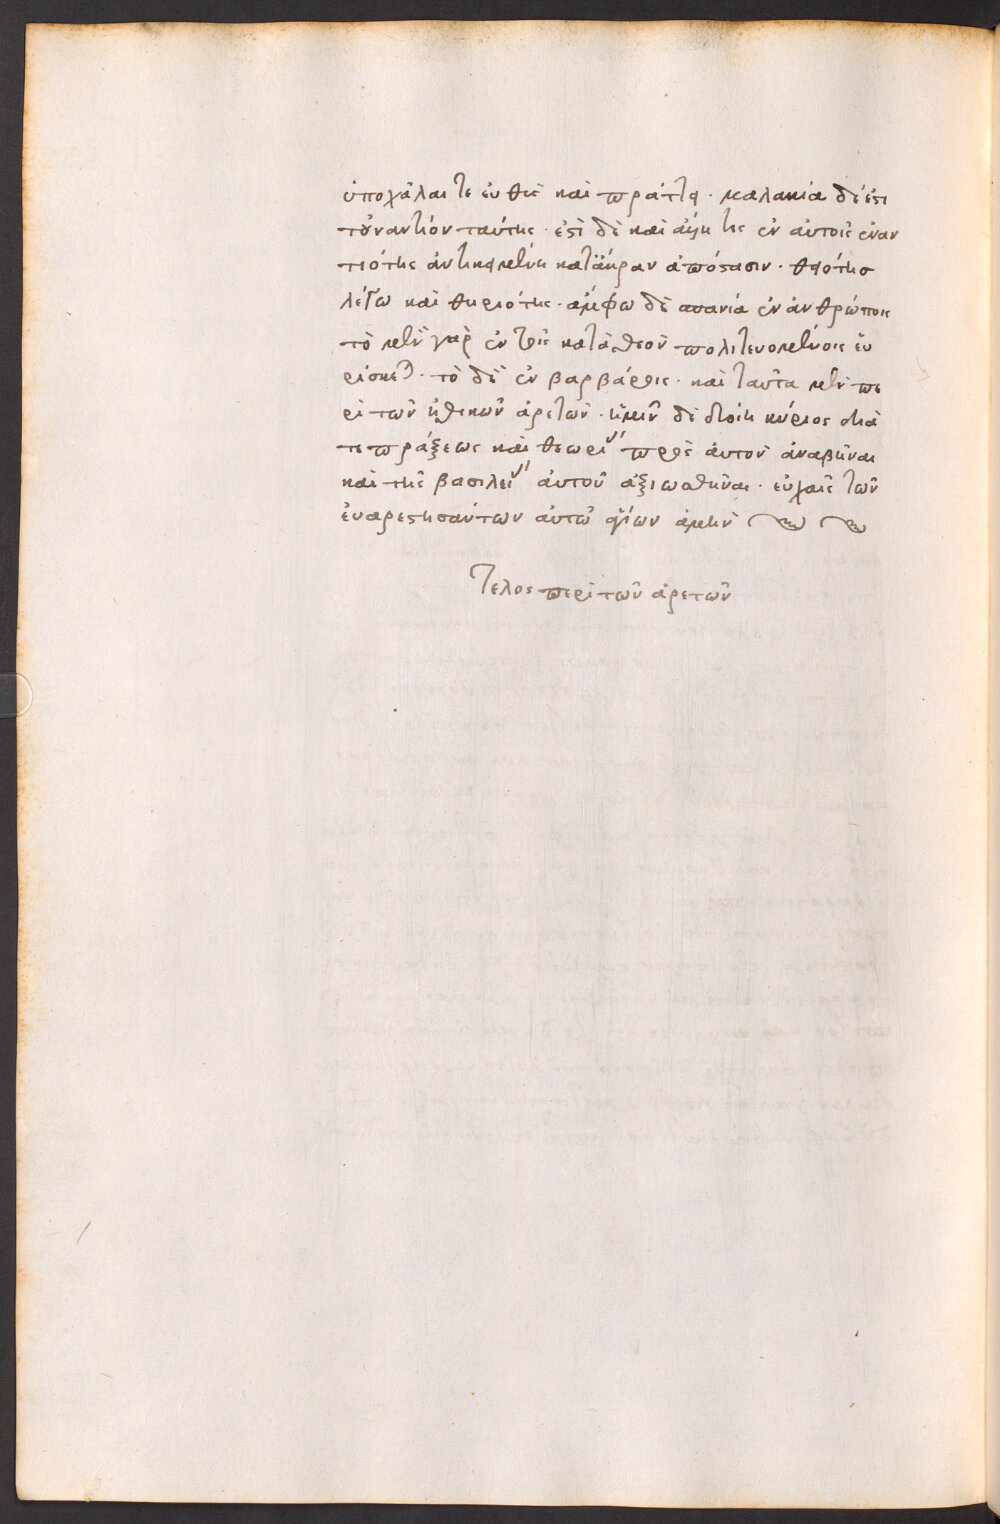 ὑποχάλαι τε εὐθὺς καὶ πράττει · μαλακία δέ ἐστι
τοὐναντίον ταύτης · ἔστι δὲ καὶ ἄλλη τις ἐν αὐτοῖς ἐναν
τιότης ἀντικειμένη κατ' ἄκραν ἀπόστασιν · θεότης
λέγω καὶ θηριότης · ἄμφω δὲ σπανία ἐν ἀνθρώποις
τὸ μὲν γὰρ ἐν τοῖς κατὰ θεὸν πολιτευομένοις εὑ
ρίσκεται · τὸ δὲ ἐν βαρβάροις · καὶ ταῦτα μὲν πε
ρὶ τῶν ἠθικῶν ἀρετῶν · ἡμῖν δὲ δώῃ κύριος διὰ
τε πράξεως καὶ θεωρίας πρὸς αὐτὸν ἀναβῆναι
καὶ τῆς βασιλείας αὐτοῦ ἀξιωθῆναι · εὐχαῖς τῶν
εὐαρεστησάντων αὐτῷ ἁγίων ἀμήν
Τέλος περὶ τῶν ἀρετῶν